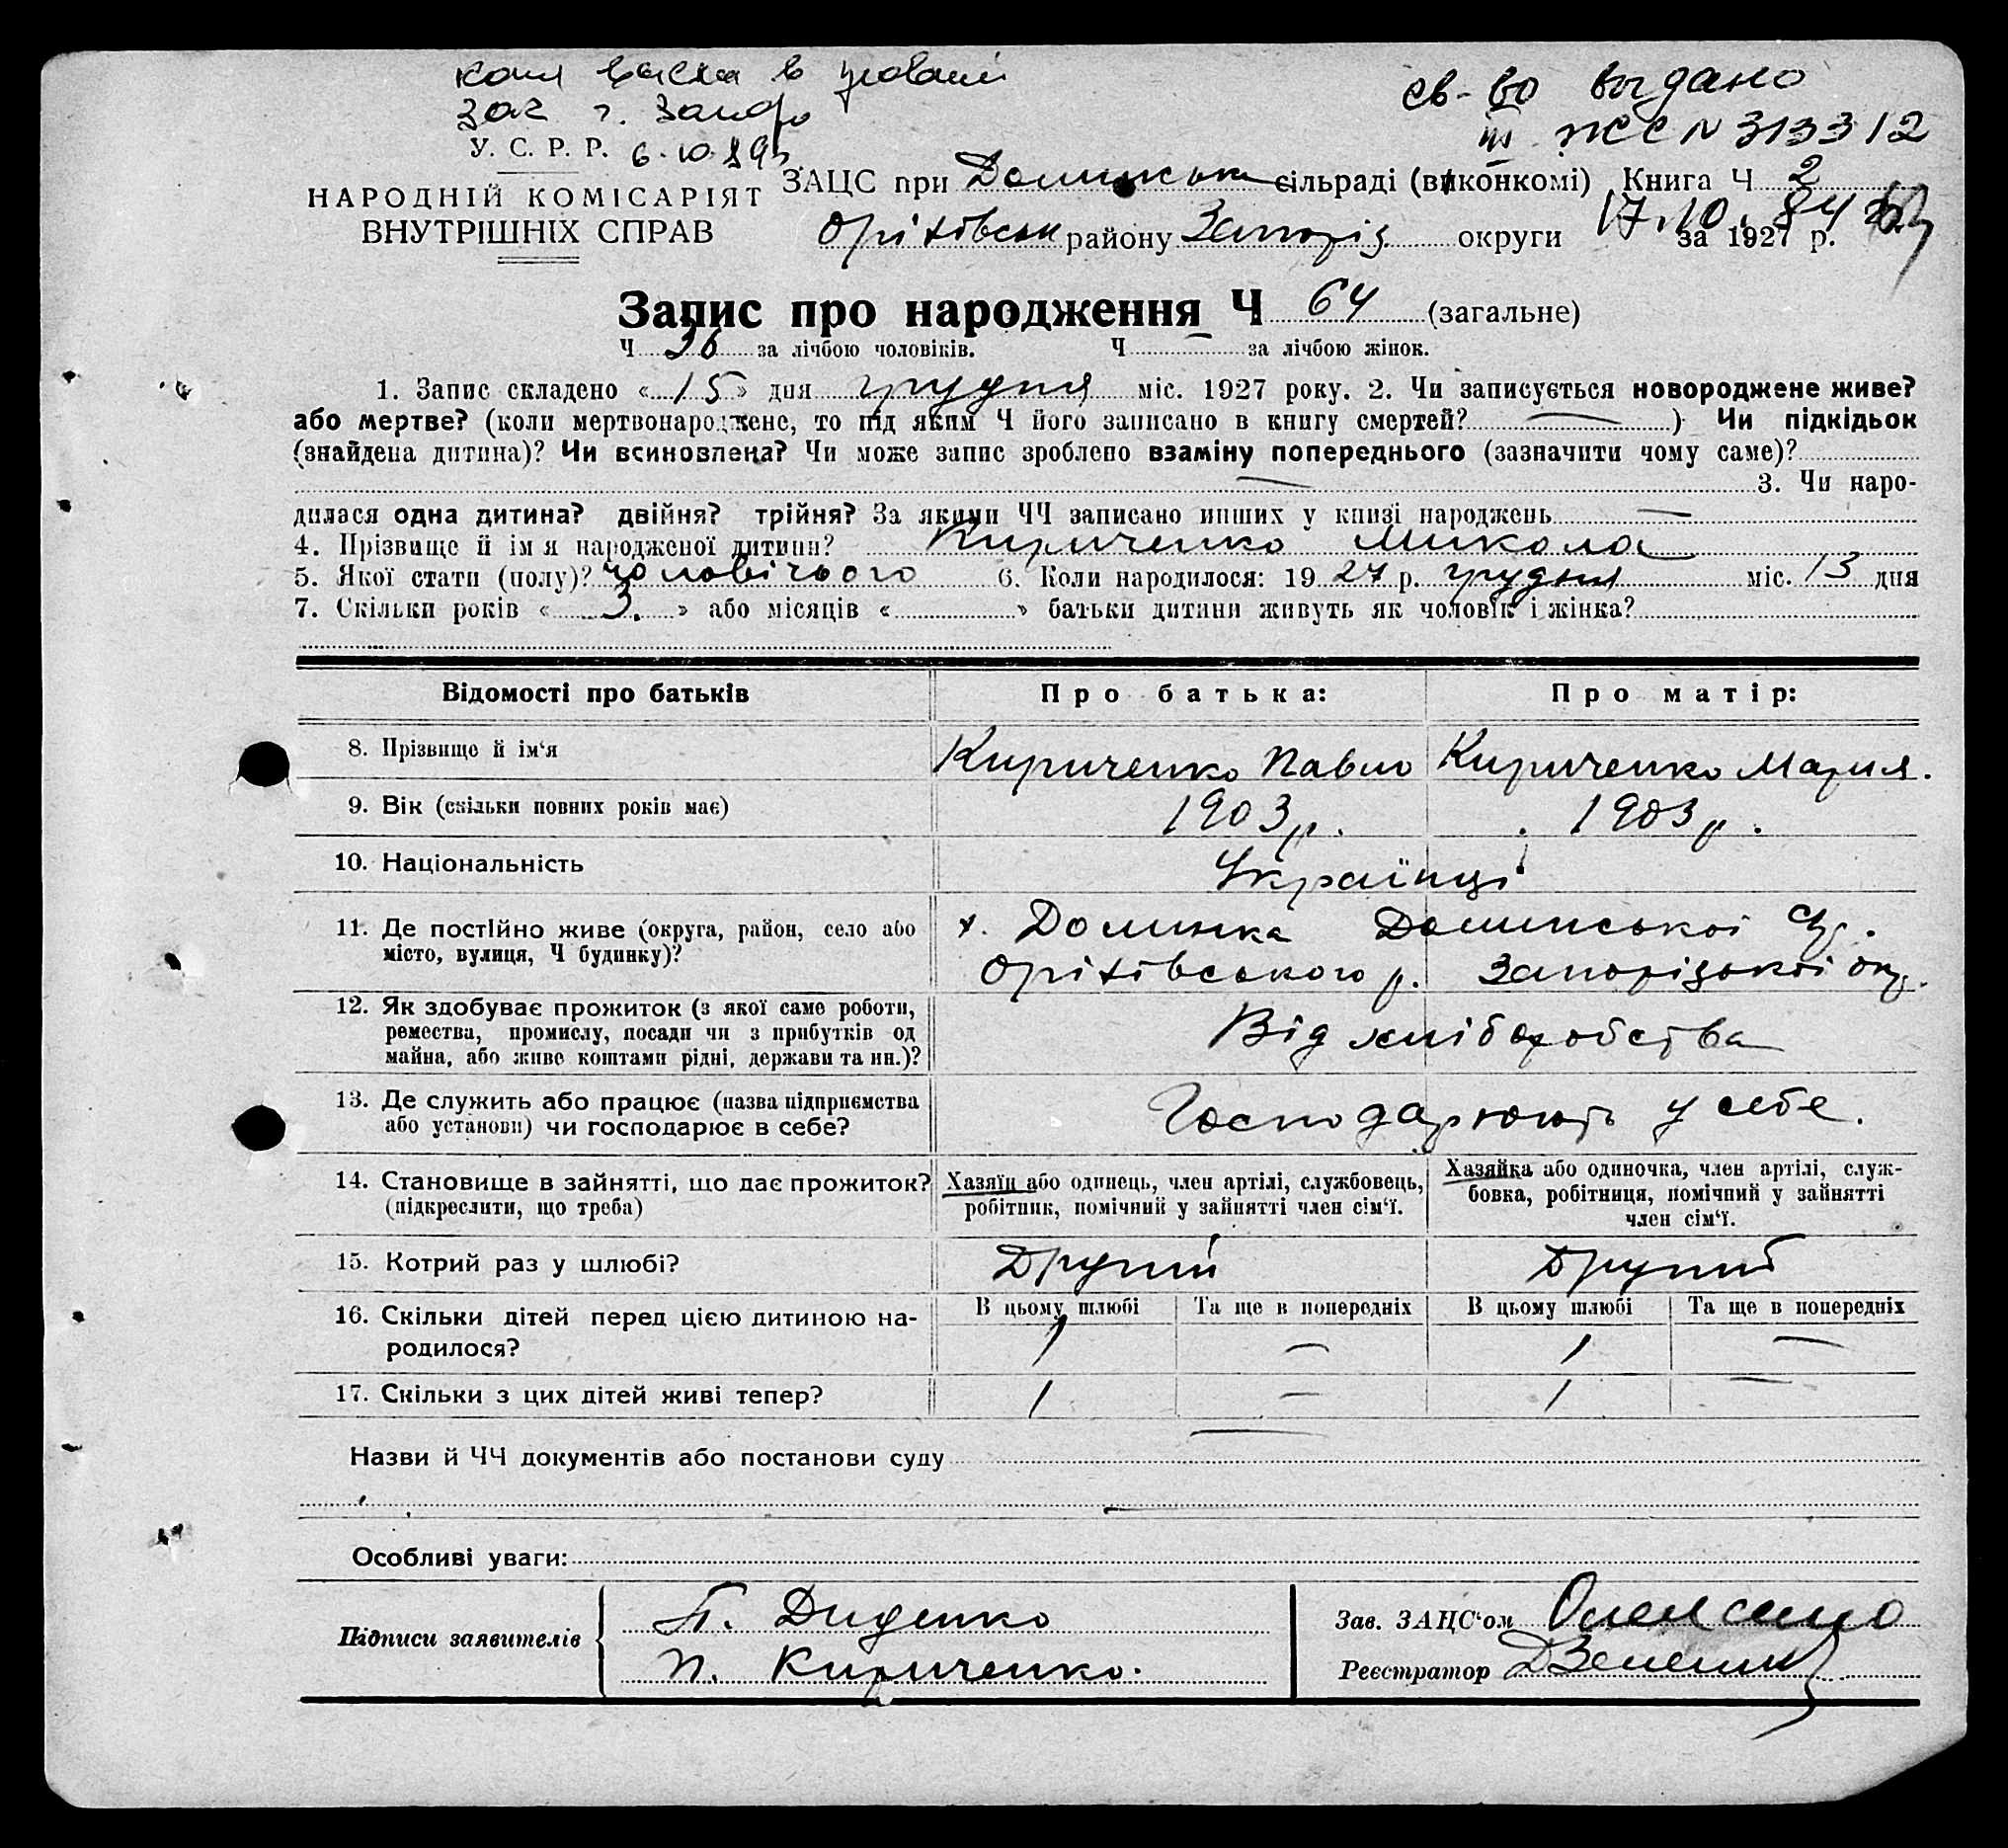 копия
зага г. Запор
св-во выдано
III ЖС N 313312
У. С. Р. Р. 6.10.89г.
НАРОДНІЙ КОМІСАРІЯТ
ВНУТРІШНІХ СПРАВ
ЗАЦС при Долинськ сільраді (виконкомі) Книга Ч 2
Оріхівськ району Запоріз округи за 1927 р.
17.10.84
Запис про народження Ч 64 (загальне)
Ч 36 за лічбою чоловіків. Ч — за лічбою жінок.
1. Запис складено « 15 » дня грудня міс. 1927 року. 2. Чи записується новороджене живе?
або мертве? (коли мертвонароджене, то під яким Ч його записано в книгу смертей? — ) Чи підкідьок
(знайдена дитина)? Чи всиновлена? Чи може запис зроблено взаміну попереднього (зазначити чому саме)?
— 3. Чи наро-
дилася одна дитина? двійня? трійня? За якими ЧЧ записано инших у книзі народжень —
4. Прізвище й ім я народженої дитини? Кириченко Микола
5. Якої стати (полу)? чоловічього 6. Коли народилося: 19 27 р. грудня міс. 13 дня
7. Скільки років « 3. » або місяців « » батьки дитини живуть як чоловік і жінка?
Відомості про батьків Про батька: Про матір:
8. Прізвище й ім‘я Кириченко Павло Кириченко Мария.
9. Вік (скільки повних років має) 1903 р. 1903 р.
10. Національність Українці
11. Де постійно живе (округа, район, село або х. Долинка Долинської с/р.
місто, вулиця, Ч будинку)? Оріхівського р. Запорізької окр.
12. Як здобуває прожиток (з якої саме роботи,
ремества, промислу, посади чи з прибутків од Від хліборобства
майна, або живе коштами рідні, держави та ин.)?
13. Де служить або працює (назва підприємства Господарюють у себе.
або установи) чи господарює в себе?
14. Становище в зайнятті, що дає прожиток? Хазяїн або одинець, член артілі, службовець, Хазяйка або одиночка, член артілі, служ-
(підкреслити, що треба) робітник, помічний у зайнятті член сім‘ї. бовка, робітниця, помічний у зайнятті
член сім‘ї.
15. Котрий раз у шлюбі? Другий Другий
16. Скільки дітей перед цією дитиною на- В цьому шлюбі Та ще в попередніх В цьому шлюбі Та ще в попередніх
родилося? 1 — 1 —
17. Скільки з цих дітей живі тепер? 1 — 1 —
Назви й ЧЧ документів або постанови суду —
—
Особливі уваги:
Підписи заявителів П. Диденко Зав. ЗАЦС‘ом
П. Кириченко. Реєстратор